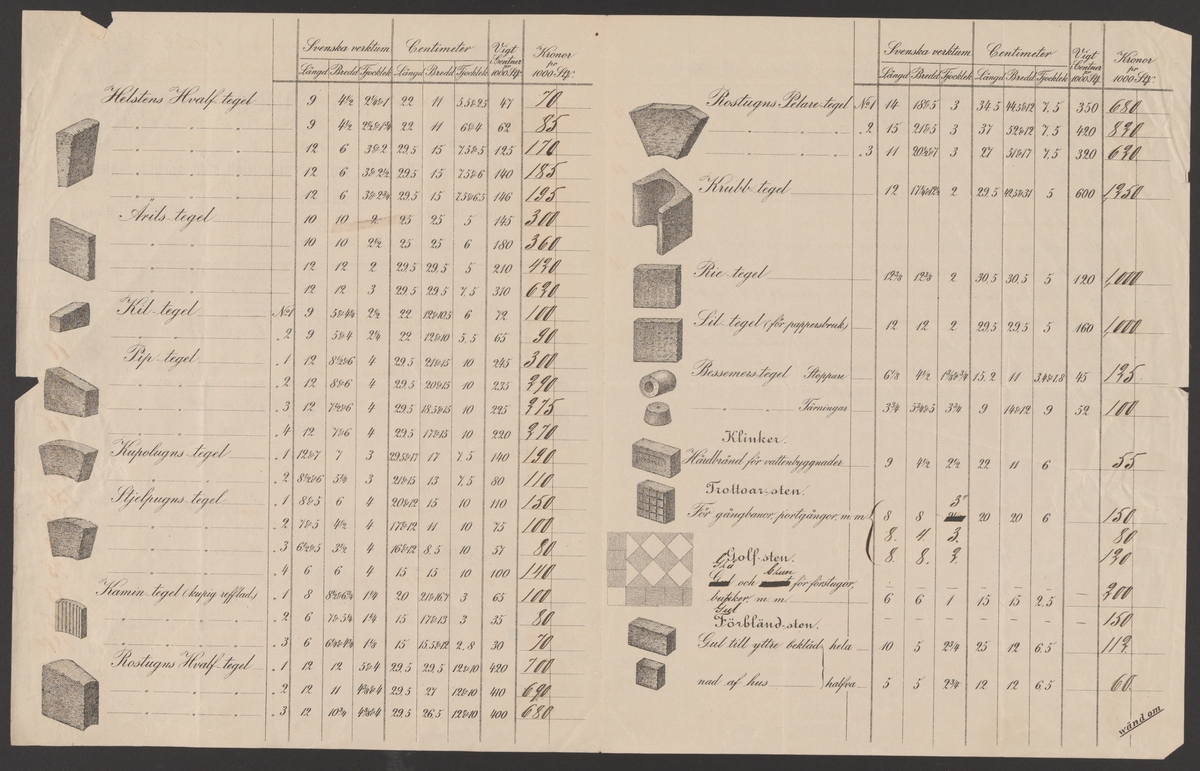 Svenska verktum Centimeter Vigt i Centner pr 1000 St. Kronor pr 1000 St.
Längd Bredd Tjocklek Längd Bredd Tjocklek
Helstens Hvalf-tegel 9 4½ 2¼&1 22 11 5.5&2.5 47 70
9 4½ 2½&1¾ 22 11 6&4 62 85
12 6 3&2 29.5 15 7.5&5 125 170
12 6 3&2½ 29.5 15 7.5&6 140 185
12 6 3&2¾ 29.5 15 7.5&6.5 146 195
Ärils-tegel 10 10 2 25 25 5 145 300
10 10 2½ 25 25 6 180 360
12 12 2 29.5 29.5 5 210 420
12 12 3 29.5 29.5 7.5 310 620
Kil-tegel No 1 9 5&4¼ 2½ 22 12&10.5 6 72 100
" 2 9 5&4 2¼ 22 12&10 5.5 65 90
Pip-tegel " 1 12 8½&6 4 29.5 21&15 10 245 300
" 2 12 8&6 4 29.5 20&15 10 235 290
" 3 12 7½&6 4 29.5 18.5&15 10 225 275
" 4 12 7&6 4 29.5 17&15 10 220 270
Kupolugns-tegel " 1 12&7 7 3 29.5&17 17 7.5 140 190
" 2 8½&6 5¼ 3 21&15 13 7.5 80 110
Stjelpugns-tegel " 1 8&5 6 4 20&12 15 10 110 150
" 2 7&5 4½ 4 17&12 11 10 75 100
" 3 6½&5 3½ 4 16&12 8.5 10 57 80
" 4 6 6 4 15 15 10 100 140
Kamin-tegel (kupig refflad) " 1 8 8½&6¾ 1¼ 20 21&16.7 3 65 100
" 2 6 7&5¼ 1¼ 15 17&13 3 35 80
" 3 6 6¼&4¾ 1⅛ 15 15.5&12 2.8 30 70
Rostugns Hvalf-tegel " 1 12 12 5&4 29.5 29.5 12&10 420 700
" 2 12 11 4¾&4 29.5 27 12&10 410 690
" 3 12 10¾ 4¾&4 29.5 26.5 12&10 400 680
Svenska verktum Centimeter Vigt i Centner pr 1000 St. Kronor pr 1000 St.
Längd Bredd Tjocklek Längd Bredd Tjocklek
Rostugns Pelare-tegel No 1 14 18&5 3 34.5 44.5&12 7.5 350 680
" 2 15 21&5 3 37 52&12 7.5 420 820
" 3 11 20½&7 3 27 51&17 7.5 320 620
Krubb-tegel 12 17¼&12½ 2 29.5 42.5&31 5 600 1,250
Rie-tegel 12⅜ 12⅜ 2 30.5 30.5 5 120 1,000
Sil-tegel (för pappersbruk) 12 12 2 29.5 29.5 5 160 1,000
Bessemers-tegel Stoppare 6⅛ 4½ 1⅜&¾ 15.2 11 3.4&1.8 45 125
" Tärningar 3¾ 5¾&5 3¾ 9 14&12 9 52 100
Klinker.
Hårdbränd för vattenbyggnader 9 4½ 2½ 22 11 6 55
Trottoar-sten.
3"
För gångbanor, portgångor, m.m. 8 8 20 20 6 150
8. 4 3. 80
8. 8. 2. 120
Golf-sten.
Grå brun
och för förstugor, — — — — — — — 200
butiker m. m. 6 6 1 15 15 2.5
Gul — — — — — — — 150
Förbländ-sten.
Gul till yttre bekläd- hela 10 5 2¾ 25 12 6.5 112
nad af hus halfva 5 5 2¾ 12 12 6.5 60
wänd om